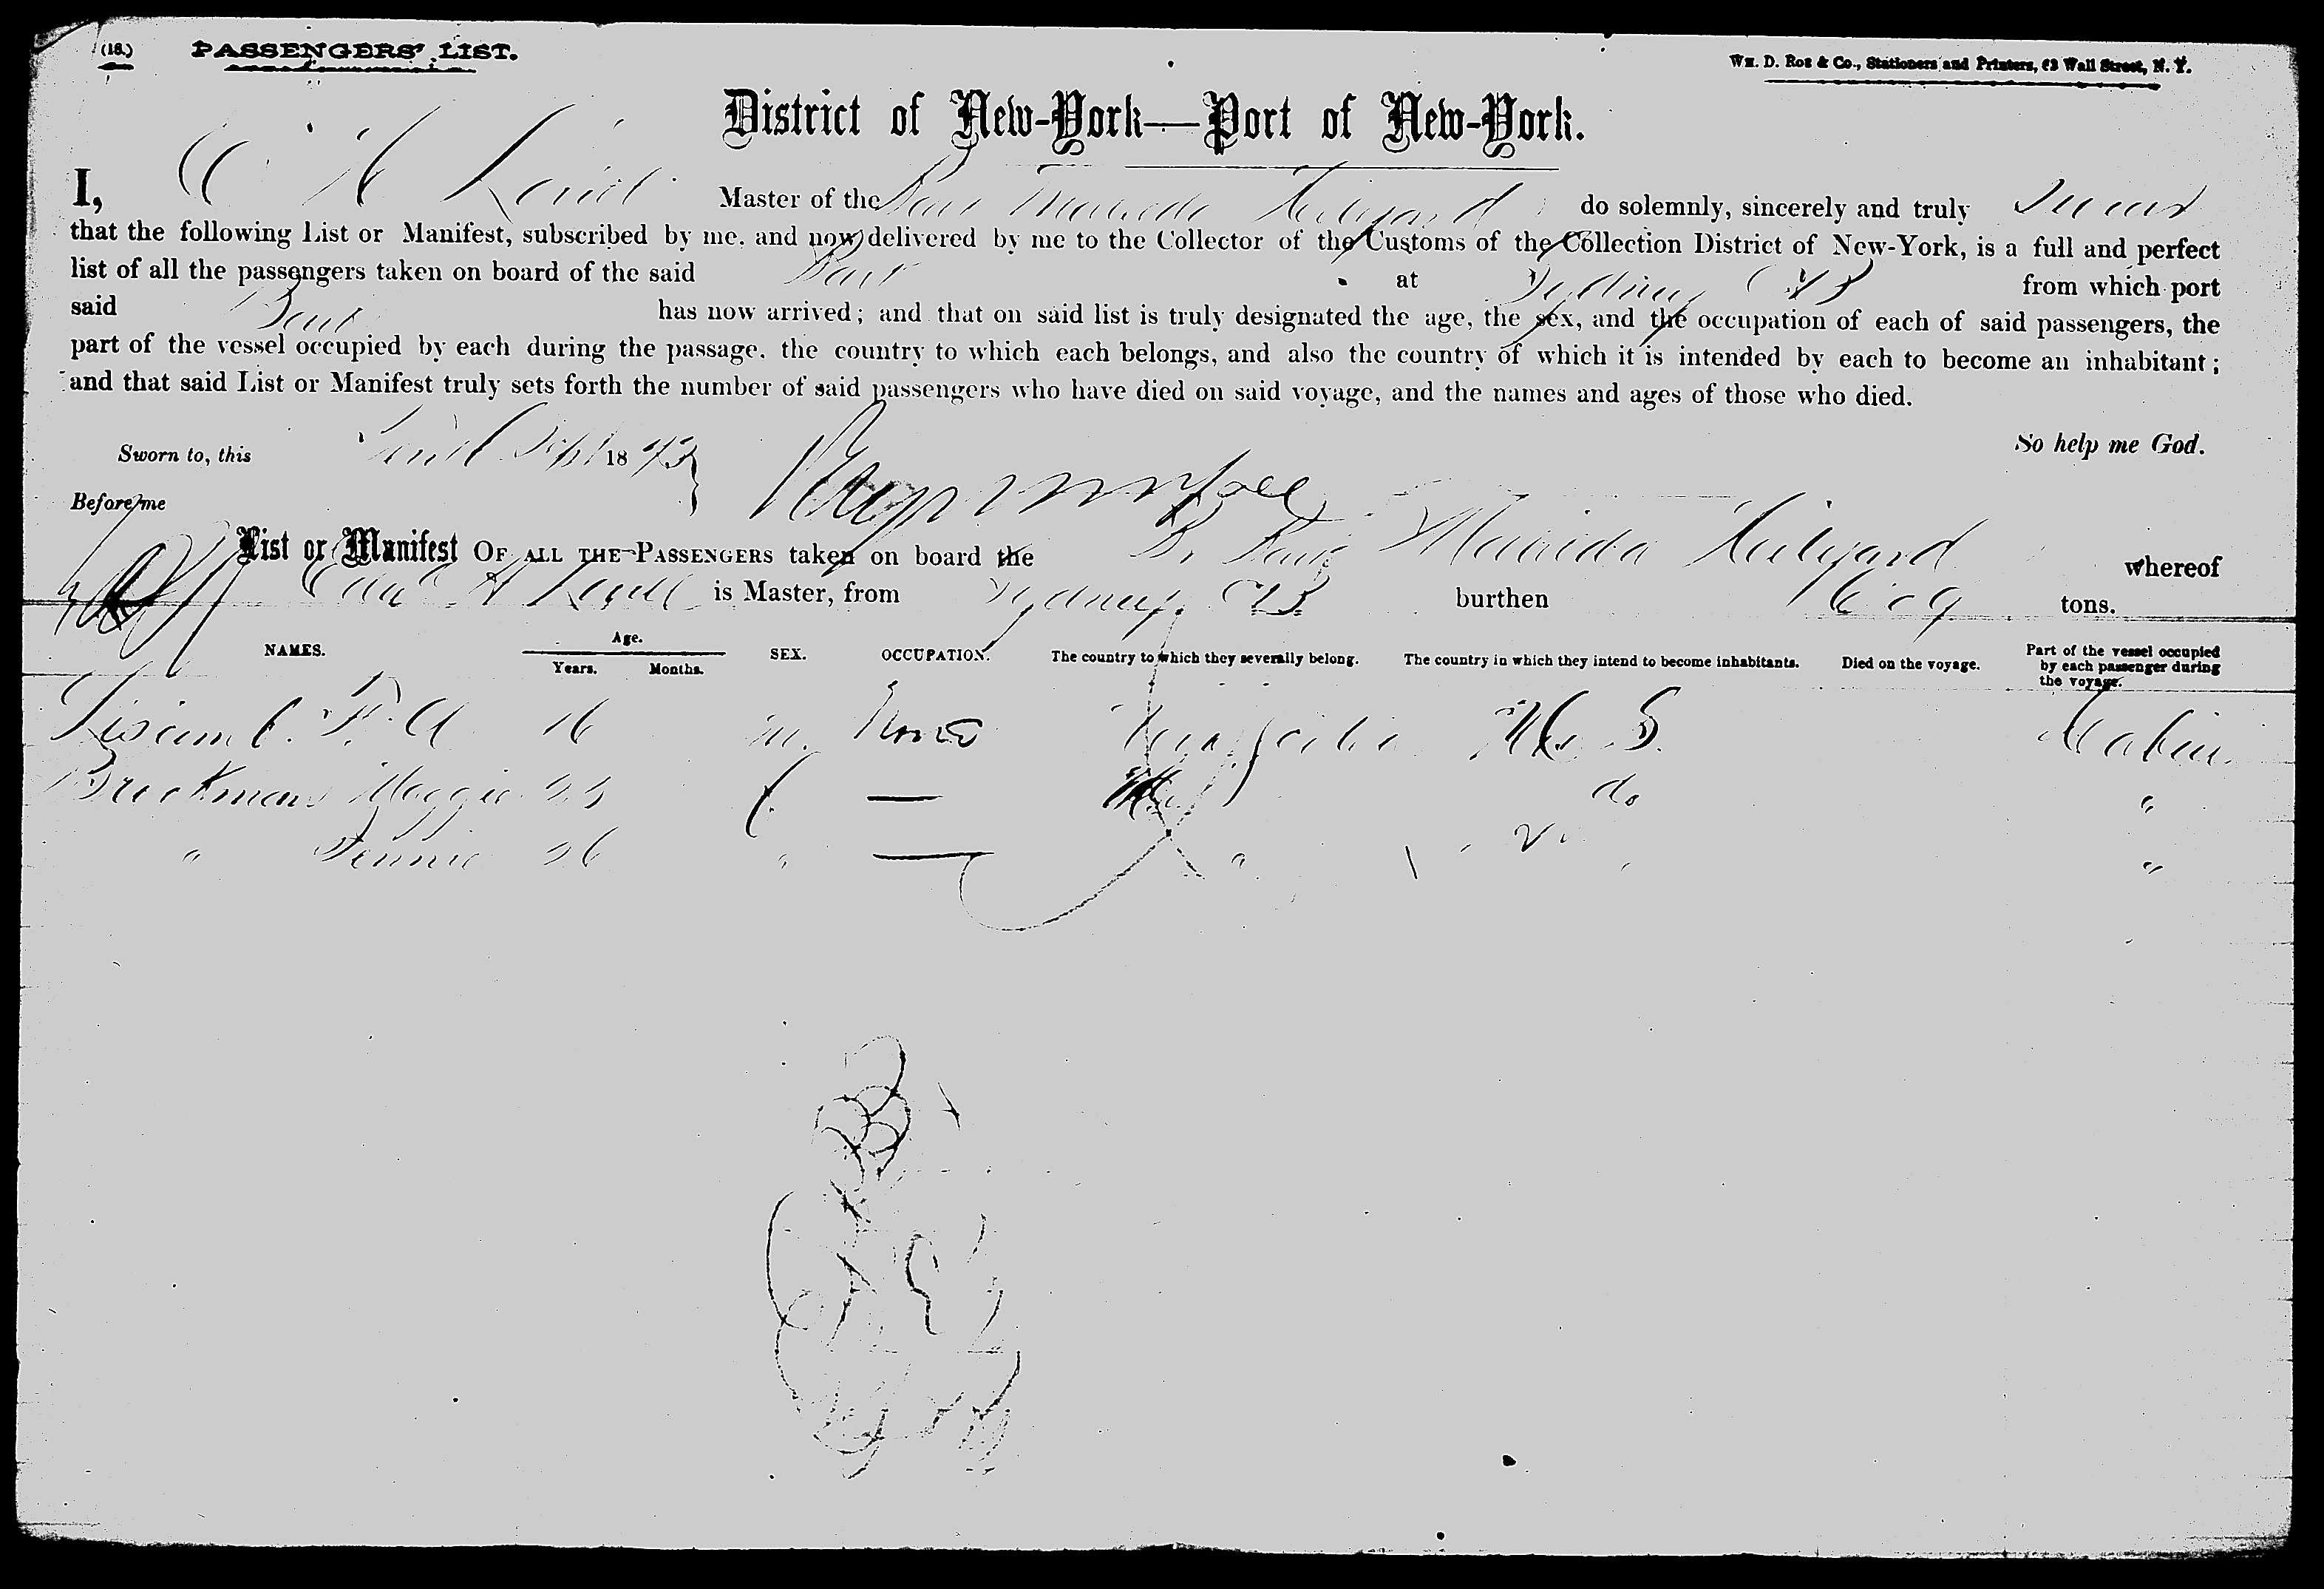 (18.) PASSENGERS' LIST.
Wm. D. Roe & Co., Stationers and Printers, 63 Wall Street, N. Y.
District of New-York—Port of New-York.
I, C H Master of the Bark Matilda Hilyard do solemnly, sincerely and truly swear
that the following List or Manifest, subscribed by me, and now delivered by me to the Collector of the Customs of the Collection District of New-York, is a full and perfect
list of all the passengers taken on board of the said Bark at Sydney CB from which port
said Bark has now arrived; and that on said list is truly designated the age, the sex, and the occupation of each of said passengers, the
part of the vessel occupied by each during the passage, the country to which each belongs, and also the country of which it is intended by each to become an inhabitant;
and that said List or Manifest truly sets forth the number of said passengers who have died on said voyage, and the names and ages of those who died.
So help me God.
Sworn to, this Sept 1873
Before me
List or Manifest OF ALL THE PASSENGERS taken on board the B. Bark Matilda Hilyard whereof
H is Master, from Sydney. CB. burthen tons.
NAMES. Age. Years. Months. SEX. OCCUPATION. The country to which they severally belong. The country in which they intend to become inhabitants. Died on the voyage. Part of the vessel occupied by each passenger during the voyage.
F. A 16 m. None U. S. Cabin
Maggie 23 f. — do "
" Jennie 26 " — " "